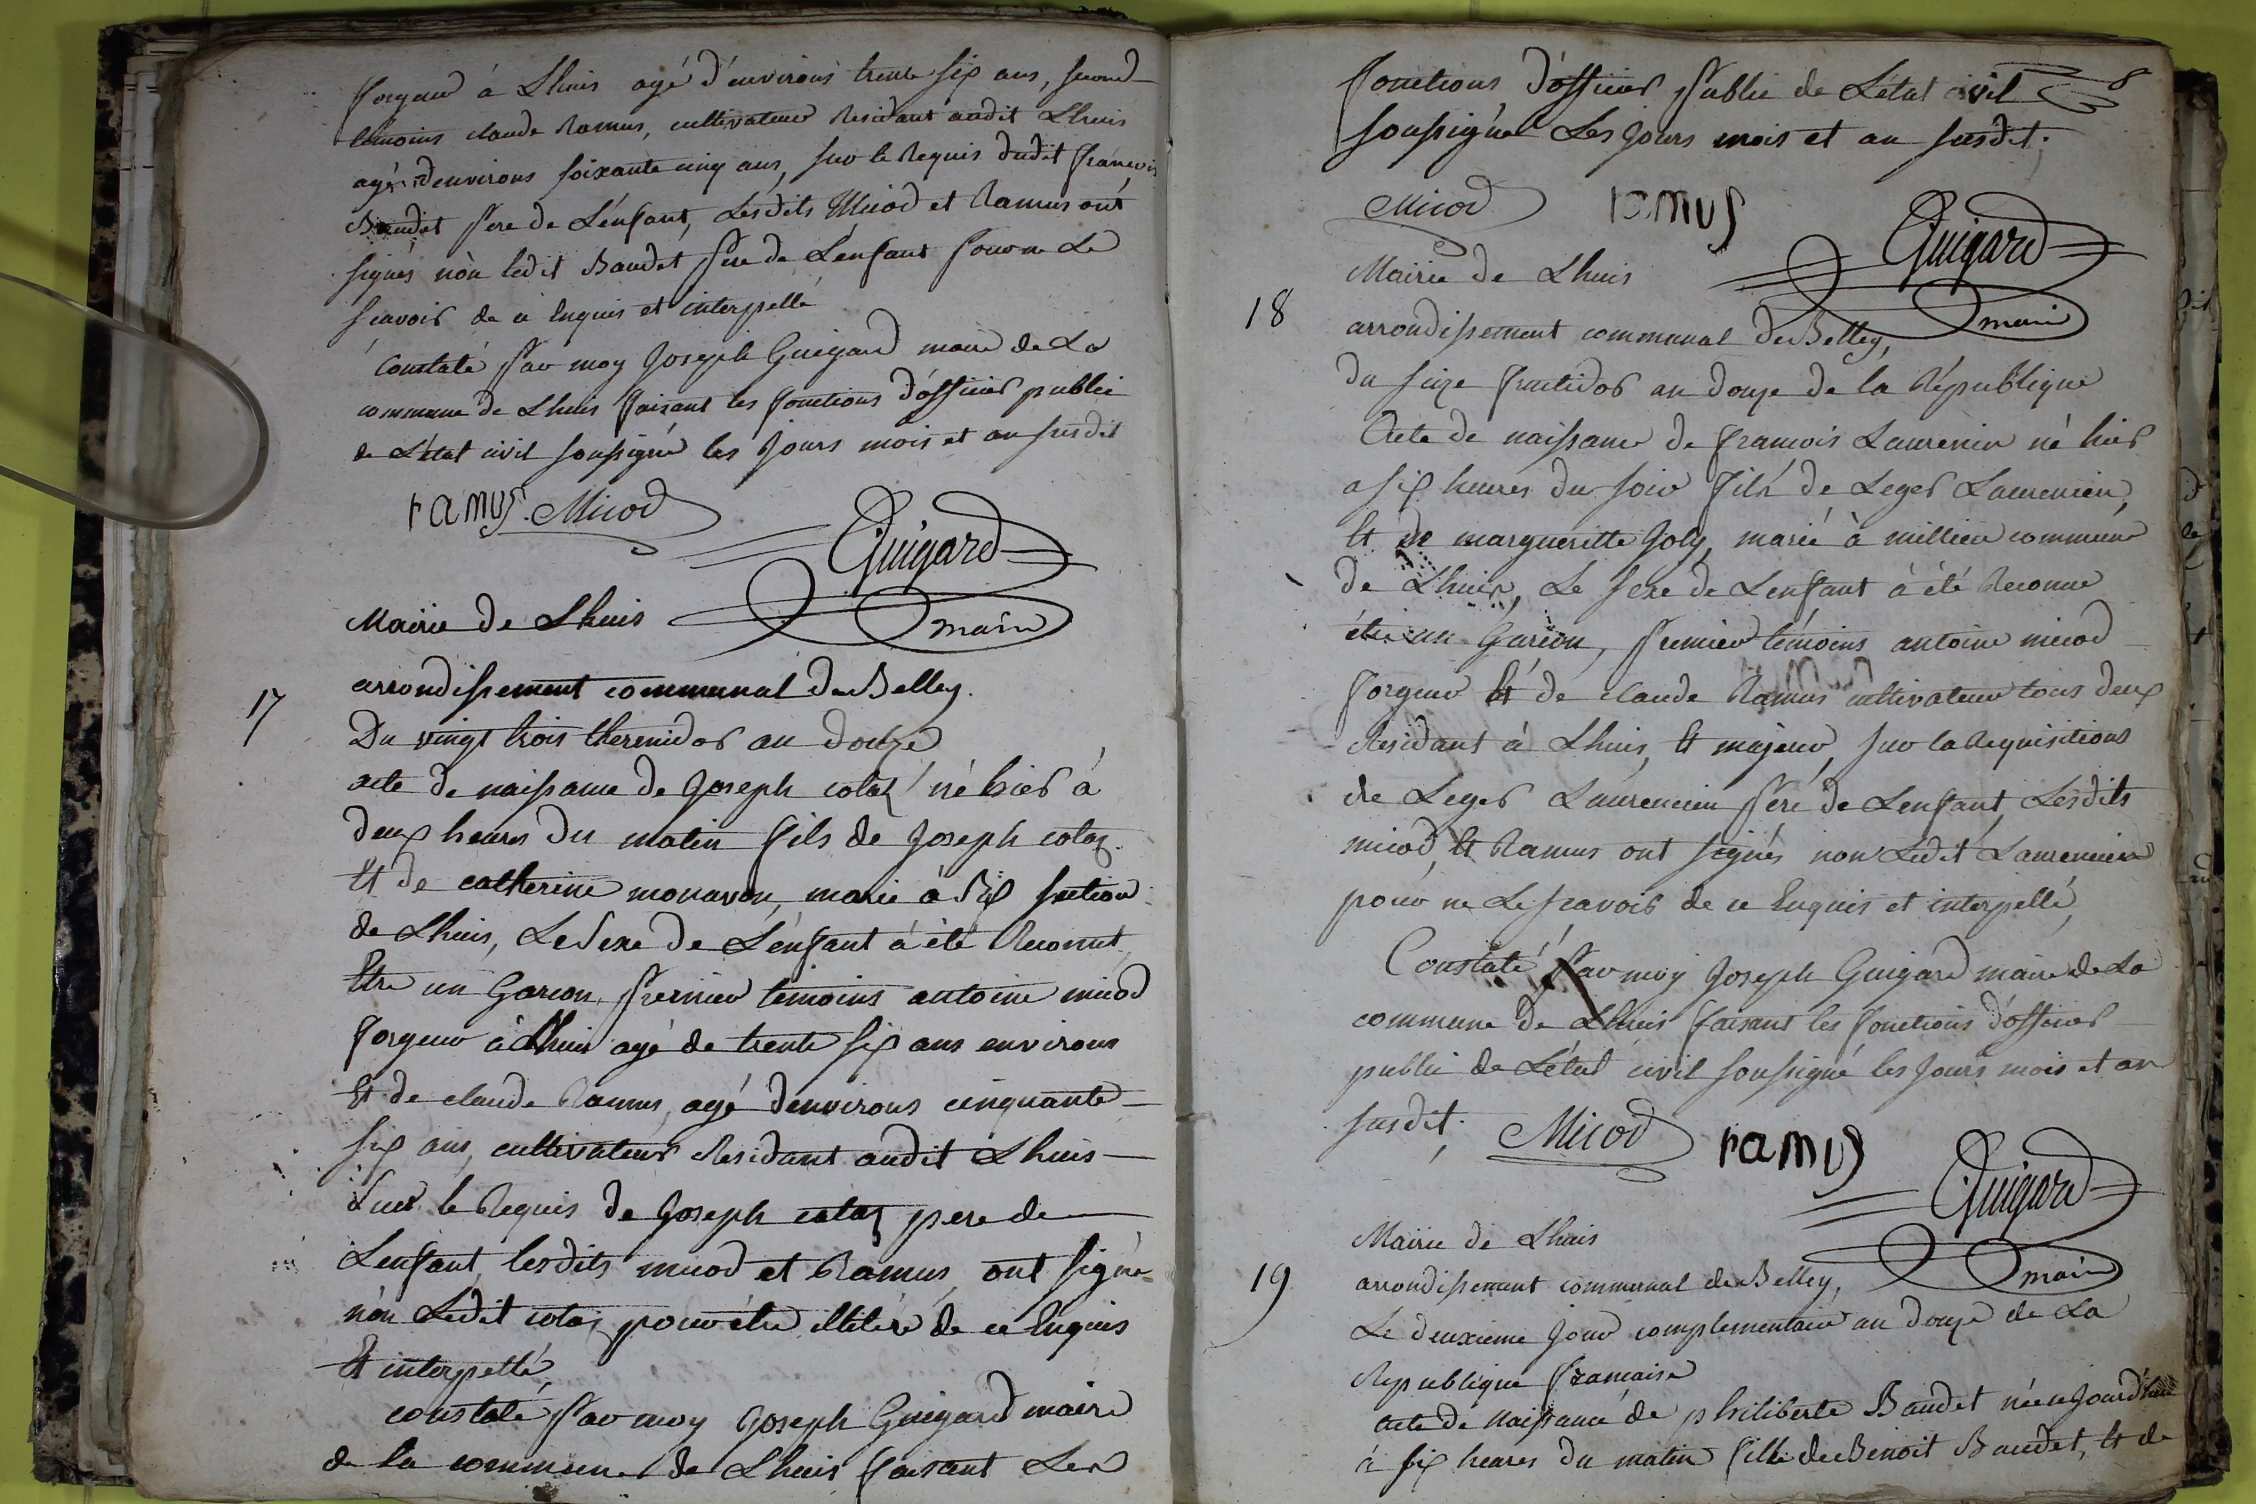 forgeur à Lhuis agé d'environs trente six ans, second
témoins claude Ramus, cultivateur Residant audit Lhuis
agé denvirons soixante cinq ans, sur le Requis dudit francois
Baudet pere de L'enfant, Lesdits Micod et Ramus ont
signés non ledit Baudet pere de L'enfant pour ne Le
scavoir de ce Enquis et interpellé
Constaté par moy Joseph Guigard maire de La
commune de Lhuis faisant les fonctions d'officier public
de L'état civil soussigné les Jours mois et an susdit
ramus. Micod
Guigard
maire
Mairie de Lhuis
17
arrondissement communal de Belley.
Du vingt trois thermidor an douze
acte de naissance de Joseph colaz né hier à
deux heures du matin fils de Joseph colaz
Et de catherine monavon, marié à Rix section
de Lhuis, Le sexe de L'enfant à été Reconnut
Etre un Garcon, premier témoins antoine micod
forgeur à Lhuis agé de trente six ans environs
Et de claude Ramus, agé denvirons cinquante
six ans, cultivateur Residant audit Lhuis
Sur le Requis de Joseph colaz pere de
L'enfant, lesdits micod et Ramus, ont signé
non Ledit colaz pour être illitéré de ce Enquis
Et interpellé,
constaté par moy Joseph Guigard maire
de la commune de Lhuis faisant Les
fonctions d'officier public de L'état civil
8
soussigné Les Jours mois et an susdit.
Micod ramus
Guigard
maire
Mairie de Lhuis
18
arrondissement communal de Belley,
du seize fructidor an douze de la République
Acte de naissance de francois Laurencin né hier
a six heures du soir fils de Leger Laurencin,
Et de margueritte Joly, marié à millieu commune
de Lhuis, Le sexe de L'enfant à été Reconnu
étre un Garcon, premier témoins antoine micod
forgeur Et de claude Ramus cultivateur tous deux
Residant à Lhuis, Et majeur, sur la Requisitions
de Leger Laurencin pere de L'enfant, Lesdits
micod, Et Ramus ont signés non Ledit Laurencin
pour ne Le scavoir de ce Enquis et interpellé,
Constaté par moy Joseph Guigard maire de La
commune de Lhuis faisant les fonctions d'officier
public de L'état civil soussigné les Jours mois et an
susdit. Micod ramus
Guigard
maire
Mairie de Lhuis
19
arrondissement communal de Belley,
Le deuxieme Jour complementaire an douze de La
Republique francaise
acte de naissance de philiberte Baudet née ce Jourd'hui
à six heures du matin fille de Benoit Baudet, Et de